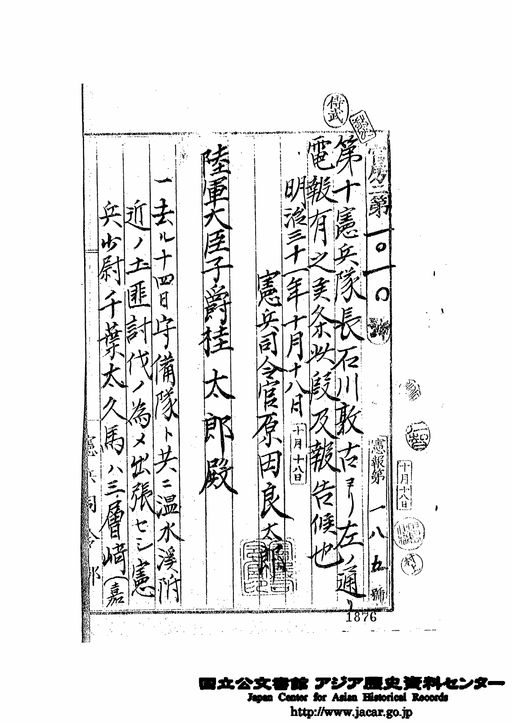 侍武
官房三第一〇一〇號
憲報第一八五號
十月十八日
第十憲兵隊長石川敦古ヨリ左ノ通リ
電報有之候条此段及報告候也
明治三十一年十月十八日
十月十八日
憲兵司令官原田良太郎
陸軍大臣子爵桂太郎殿
一去ル十四日守備隊ト共ニ温水溪附
近ノ土匪討伐ノ為メ出張セシ憲
兵少尉千葉太久馬ハ三層﨑(嘉
憲兵司令部
1876
国立公文書館 アジア歴史資料センター
Japan Center for Asian Historical Records
http://www.jacar.go.jp